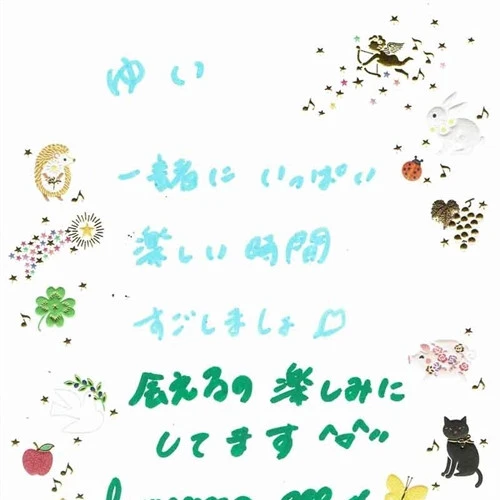 ゆい
一緒に いっぱい
楽しい 時間
すごしましょ♡
会えるの 楽しみに
してます ^o^